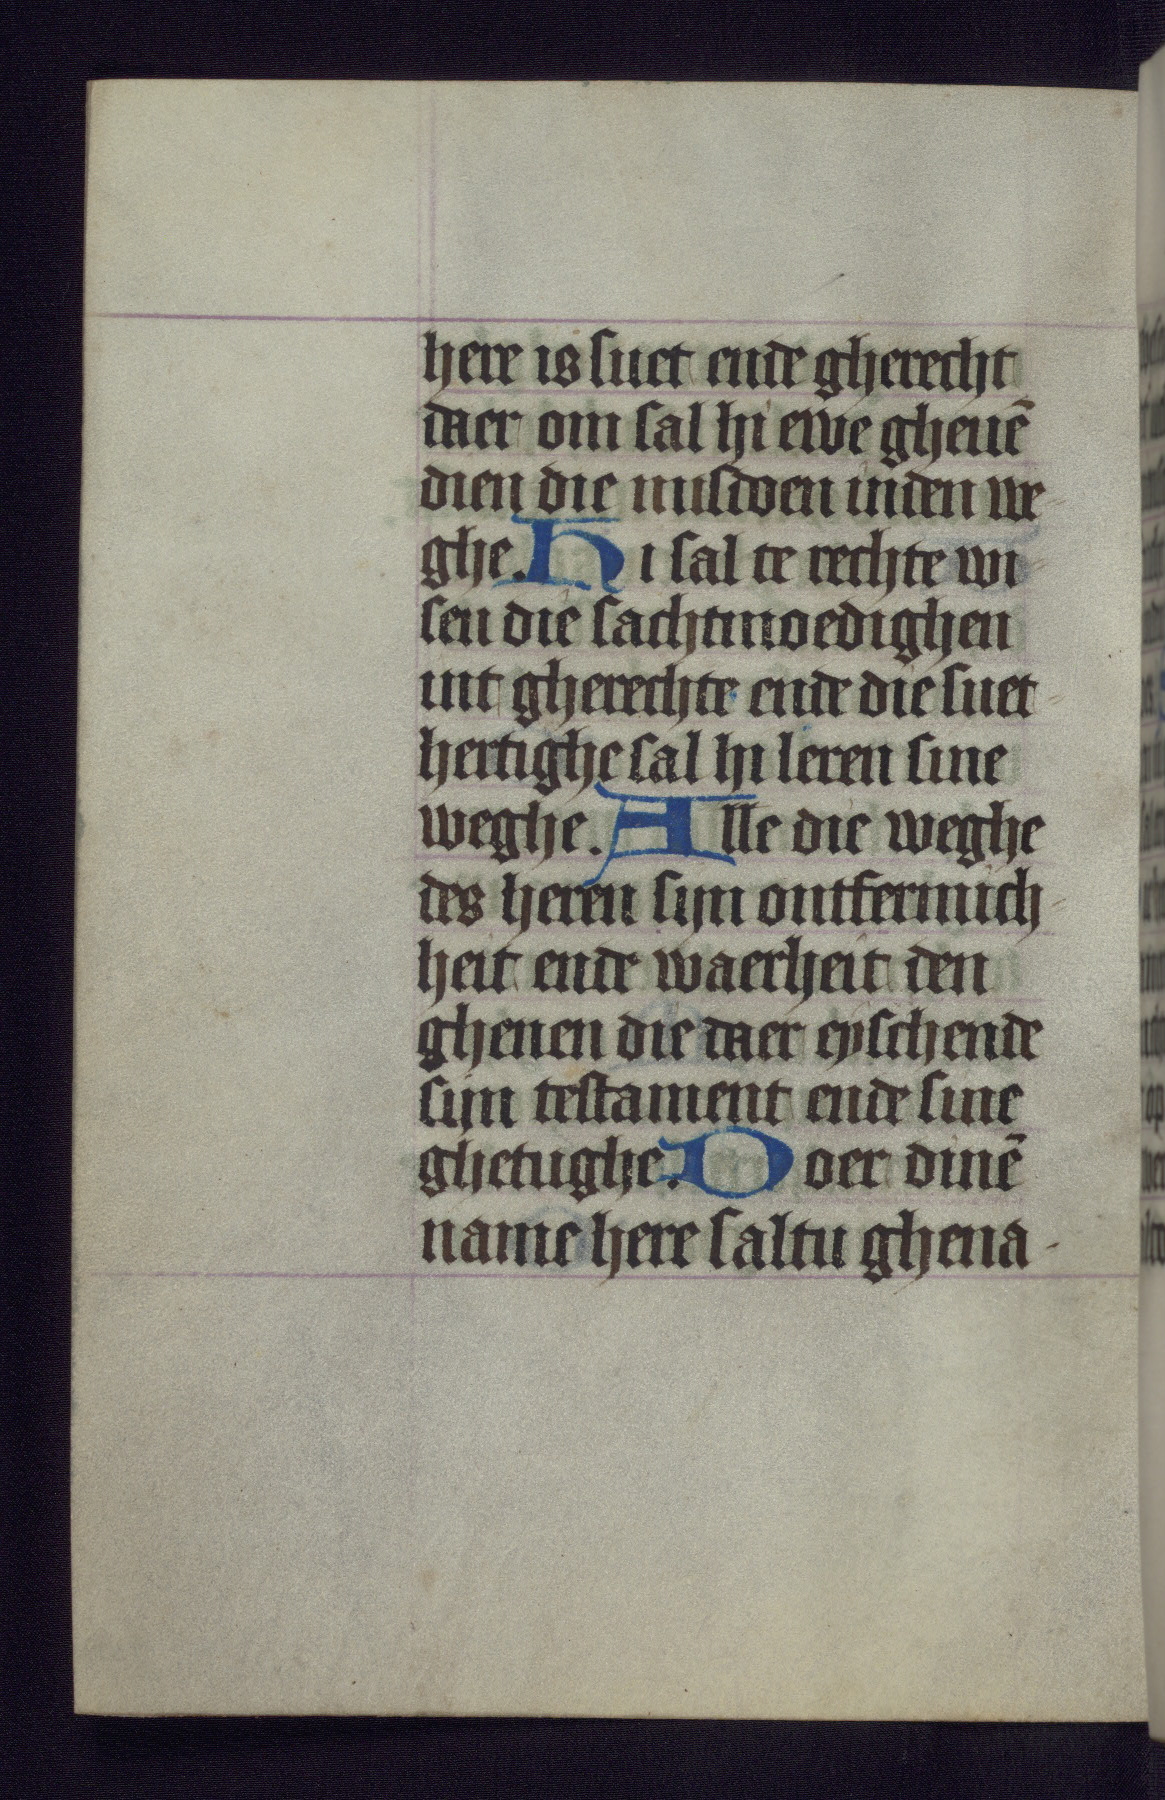 here is suet ende gherecht
daer om sal hi ewe gheuē
dien die misdoen inden we
ghe. Hi sal te rechte wi
sen die sachtmoedighen
int gherechte ende die suet
hertighe sal hi leren sine
weghe. Alle die weghe
des heren sijn ontfermich
heit ende waerheit den
ghenen die daer eyschende
sijn testament ende sine
ghetughe. Doer dinē
name here saltu ghena